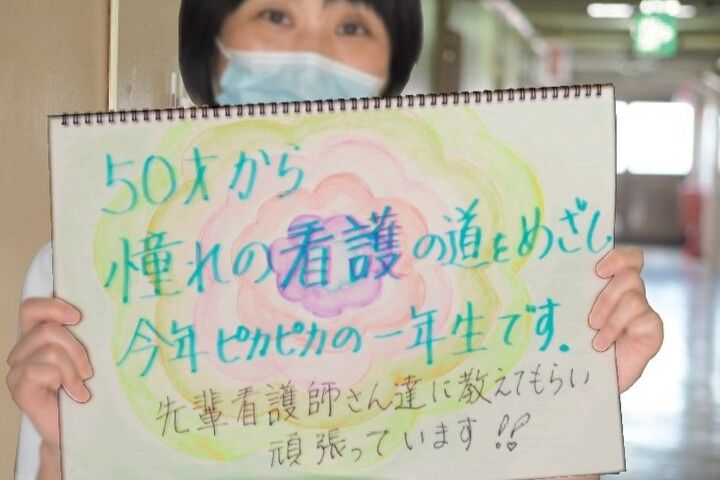 50才から
憧れの看護の道をめざし
今年ピカピカの一年生です.
先輩看護師さん達に教えてもらい
頑張っています!!